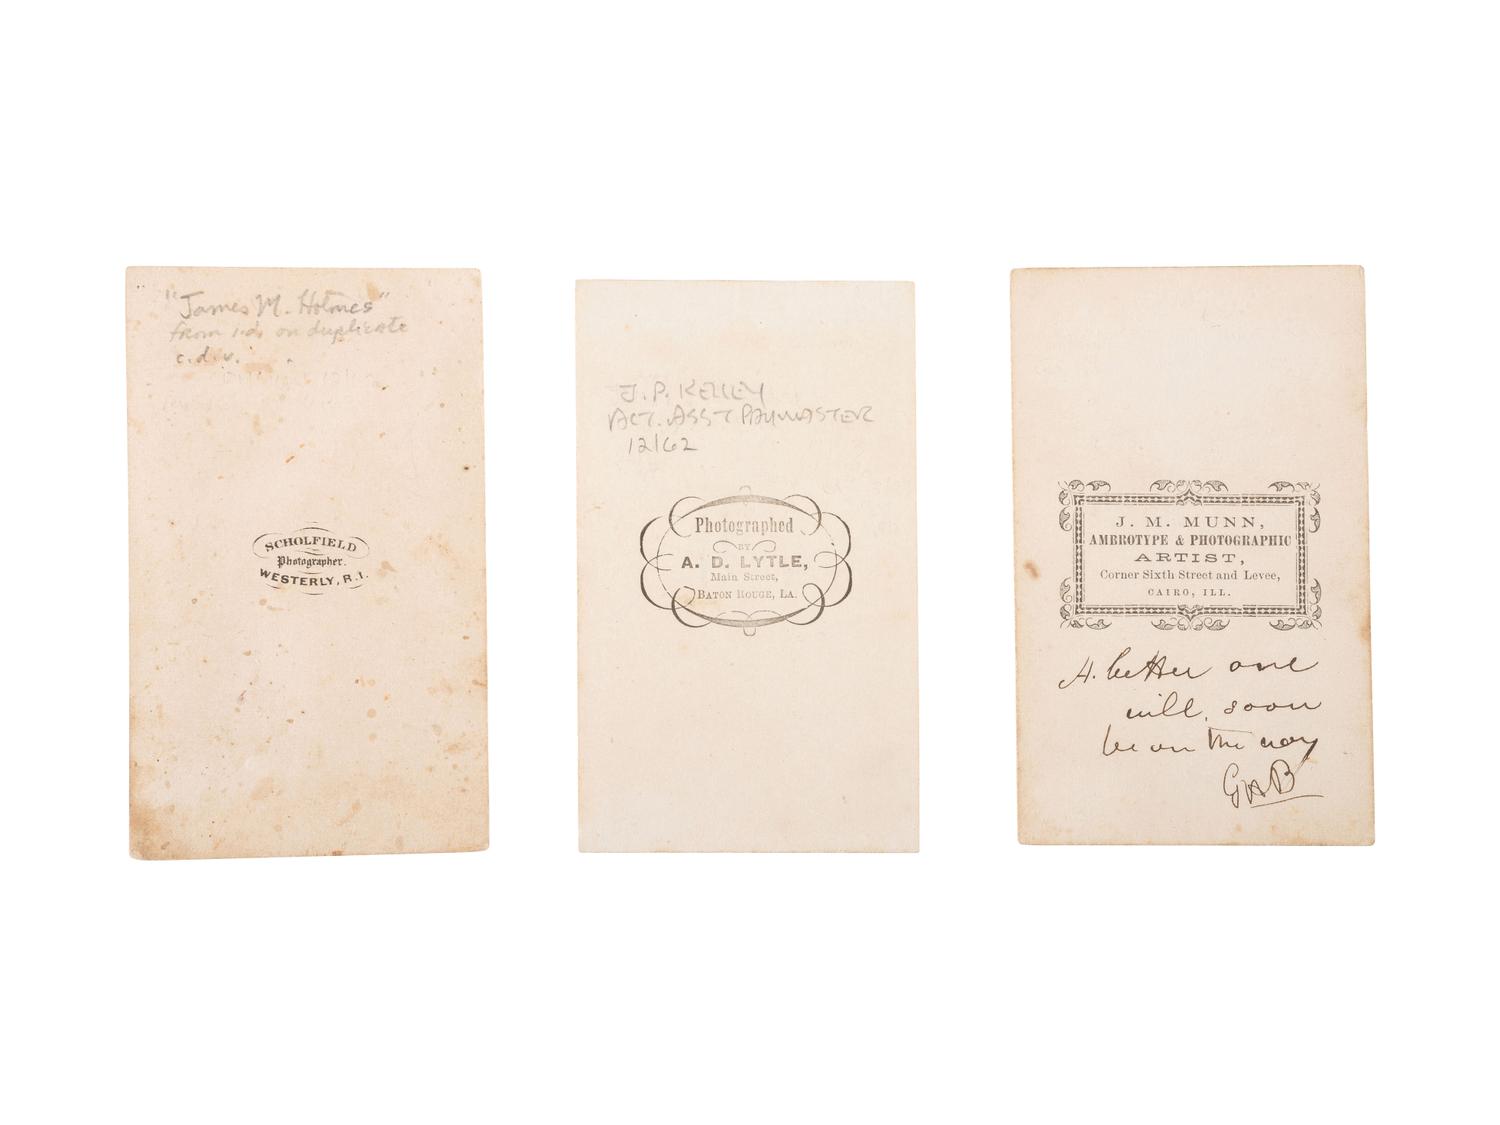 "James M. Holmes"
from i.d. on duplicate
c.d.v.
SCHOLFIELD
Photographer.
WESTERLY, R.I.
J. P. KELLEY
ACT. ASST PAYMASTER
12/62
Photographed
BY
A. D. LYTLE,
Main Street,
BATON ROUGE, LA.
J. M. MUNN,
AMBROTYPE & PHOTOGRAPHIC
ARTIST,
Corner Sixth Street and Levee,
CAIRO, ILL.
A better one
will soon
be on the way
GAB